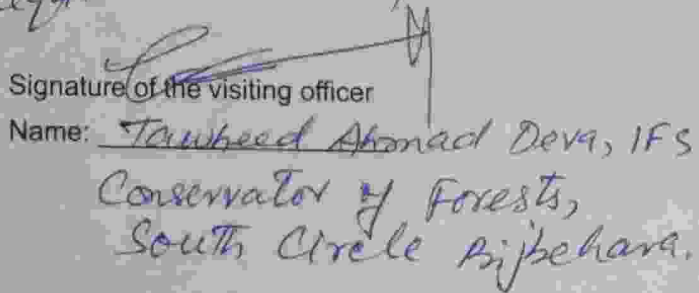 Signature of the visiting officer
Name: Tawheed Ahmad Deva, IFS
Conservator of Forests,
South Circle Bijbehara.